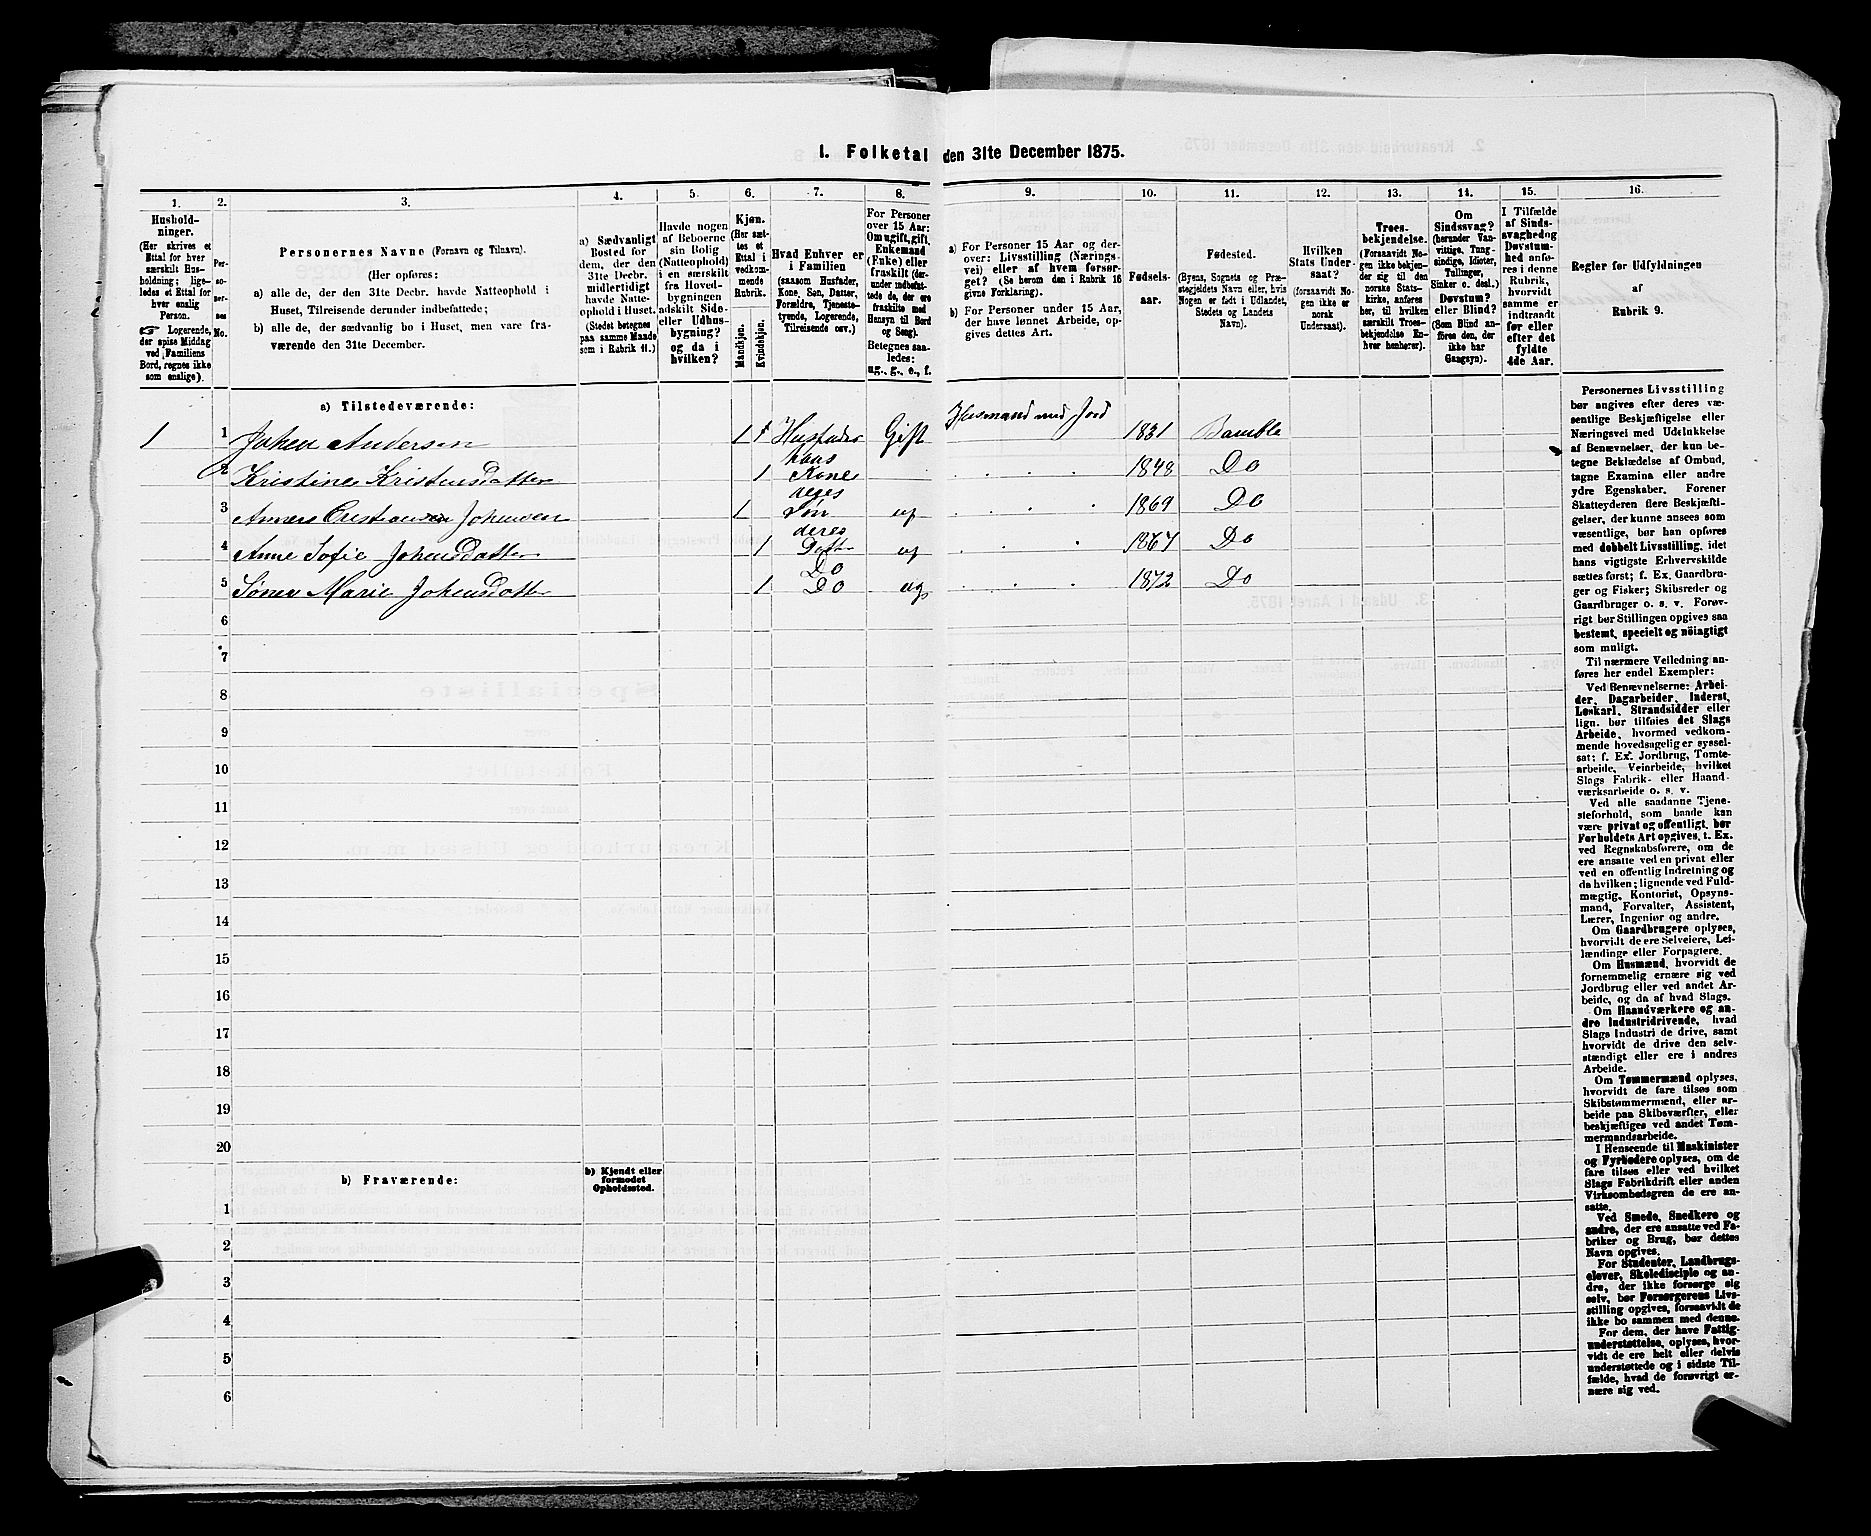 I. Folketal den 31te December 1875.
1.
Hushold-
ninger.
(Her skrives et
Ettal for hver
særskilt Hus-
holdning; lige-
ledes et Ettal for
hver enslig
Person.
☞ Logerende,
der spise Middag
ved Familiens
Bord, regnes ikke
som enslige).
2.
Per-
so-
ner-
nes
No.
3.
Personernes Navne (Fornavn og Tilnavn).
(Her opføres:
a) alle de, der den 31te Decbr. havde Natteophold i
Huset, Tilreisende derunder indbefattede;
b) alle de, der sædvanlig bo i Huset, men vare fra-
værende den 31te December.
4.
a) Sædvanligt
Bosted for
dem, der den
31te Decbr.
midlertidigt
havde Natte-
ophold i Huset.
(Stedet betegnes
paa samme Maade
som i Rubrik 11.)
5.
Havde nogen
af Beboerne
sin Bolig
(Natteophold)
i en særskilt
fra Hoved-
bygningen
adskilt Side-
eller Udhus-
bygning?
og da i
hvilken?
6.
Kjøn.
(Her sæt-
tes et
Ettal i
vedkom-
mende
Rubrik.
Mandkjøn.
Kvindekjøn.
7.
Hvad Enhver er
i Familien
(saasom Husfader,
Kone, Søn, Datter,
Forældre, Tjeneste-
tyende, Logerende,
Tilreisende osv.)
8.
For Personer
over 15 Aar:
Om ugift, gift,
Enkemand
(Enke) eller
fraskilt (der-
under indbefat-
tede de, der ere
fraskilte med
Hensyn til Bord
og Seng).
Betegnes saa-
ledes:
ug., g., e., f.
9.
a) For Personer 15 Aar og der-
over: Livsstilling (Nærings-
vei) eller af hvem forsør-
get? (Se herom den i Rubrik 16
givne Forklaring).
b) For Personer under 15 Aar,
der have lønnet Arbeide, op-
gives dettes Art.
10.
Fødsels-
aar.
11.
Fødested.
(Byens, Sognets og Præ-
stegjeldets Navn eller, hvis
Nogen er født i Udlandet,
Stedets og Landets
Navn).
12.
Hvilken
Stats Under-
saat?
(forsaavidt No-
gen ikke er
norsk
Undersaat).
13.
Troes-
bekjendelse.
(Forsaavidt No-
gen ikke bekjen-
der sig til den
norske Stats-
kirke, anføres
her, til hvilken
særskilt Troes-
bekjendelse En-
hver henhører).
14.
Om
Sindssvag?
(herunder Van-
vittige, Tung-
sindige, Idioter,
Tullinger,
Sinker o. desl.)
Døvstum?
eller Blind?
(Som Blind an-
føres den, der
ikke har
Gangsyn).
15.
I Tilfælde
af Sinds-
svaghed og
Døvstum-
hed anfø-
res i denne
Rubrik,
hvorvidt
samme er
indtraadt
før eller
efter det
fyldte
4de Aar.
16.
Regler for Udfyldningen
af
Rubrik 9.
a) Tilstedeværende:
1 1 Johen Andersen 1 1 Husfader Gift Husmand med Jord 1831 Bamble
2 Kristine Kristensdatter 1 hans Kone 1848 Do
3 Anners Cristiansen Johensen 1 deres Søn ug 1869 Do
4 Anne Sofie Johensdatter 1 deres Datter ug 1867 Do
5 Sønev Marie Johensdatter 1 Do Do ug 1872 Do
6
7
8
9
10
11
12
13
14
15
16
17
18
19
20
b) Fraværende:
b) Kjendt eller
formodet
Opholdssted.
1
2
3
4
5
6
Personernes Livsstilling
bør angives efter deres væ-
sentlige Beskjæftigelse eller
Næringsvei med Udelukkelse
af Benævnelser, der kun be-
tegne Beklædelse af Ombud,
tagne Examina eller andre
ydre Egenskaber. Forener
Skatteyderen flere Beskjæfti-
gelser, der kunne ansees som
væsentlige, bør han opføres
med dobbelt Livsstilling, idet
hans vigtigste Erhvervskilde
sættes først; f. Ex. Gaardbru-
ger og Fisker; Skibsreder og
Gaardbruger o. s. v. Forøv-
rigt bør Stillingen opgives saa
bestemt, specielt og nöiagtigt
som muligt.
Til nærmere Veiledning an-
føres her endel Exempler:
Ved Benævnelserne: Arbei-
der, Dagarbeider, Inderst,
Løskarl, Strandsidder eller
lign. bør tilføies det Slags
Arbeide, hvormed vedkom-
mende hovedsagelig er syssel-
sat; f. Ex. Jordbrug, Tomte-
arbeide, Veiarbeide, hvilket
Slags Fabrik- eller Haand-
værksarbeide o. s. v.
Ved alle saadanne Tjene-
steforhold, som baade kan
være privat og offentligt, bør
Forholdets Art opgives, t. Ex.
ved Regnskabsførere, om de
ere ansatte ved en privat eller
ved en offentlig Indretning og
da hvilken; lignende ved Fuld-
mægtig, Kontorist, Opsyns-
mand, Forvalter, Assistent,
Lærer, Ingeniør og andre.
Om Gaardbrugere oplyses,
hvorvidt de ere Selveiere, Lei-
lændinge eller Forpagtere.
Om Husmænd, hvorvidt de
fornemmelig ernære sig ved
Jordbrug eller ved andet Ar-
beide, og da af hvad Slags.
Om Haandværkere og an-
dre Industridrivende, hvad
Slags Industri de drive, samt
hvorvidt de drive den selv-
stændigt eller ere i andres
Arbeide.
Om Tømmermænd oplyses,
hvorvidt de fare tilsøs som
Skibstømmermænd, eller ar-
beide paa Skibsværfter, eller
beskjæftiges ved andet Tøm-
mermandsarbeide.
I Henseende til Maskinister
og Fyrbødere oplyses, om de
fare tilsøs eller ved hvilket
Slags Fabrikdrift eller anden
Virksomhedsgren de ere an-
satte.
Ved Smede, Snedkere og
andre, der ere ansatte ved Fa-
briker og Brug, bør dettes
Navn opgives.
For Studenter, Landbrugs-
elever, Skoledisciple og an-
dre, der ikke forsørge sig
selv, bør Forsørgerens Livs-
stilling opgives, forsaavidt de
ikke bo sammen med denne.
For dem, der have Fattig-
understøttelse, oplyses, hvor-
vidt de ere helt eller delvis
understøttede og i sidste Til-
fælde, hvad de forøvrigt er-
nære sig ved.